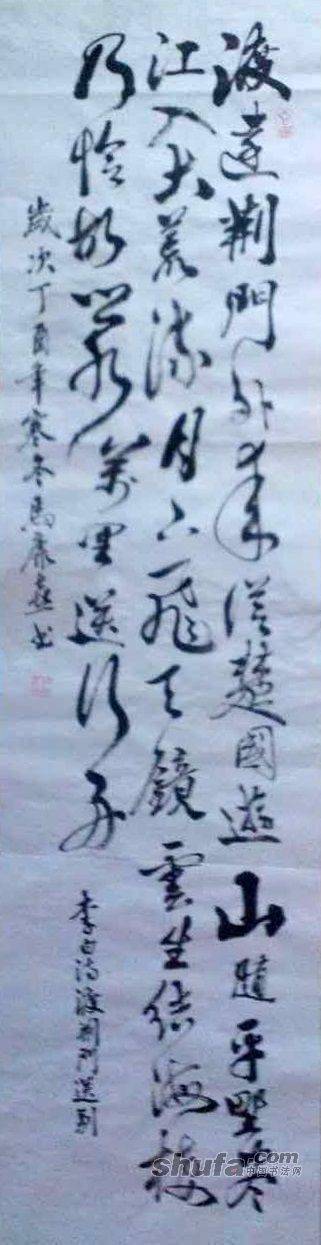 渡遠荆門外来從楚國遊山隨平野尽
江入大荒流月下飛天鏡雲生结海楼
乃怜故鄉水萬里送行舟
李白诗渡荆门送别
歲次丁酉年寒冬馬书
shufa.com
中国书法网